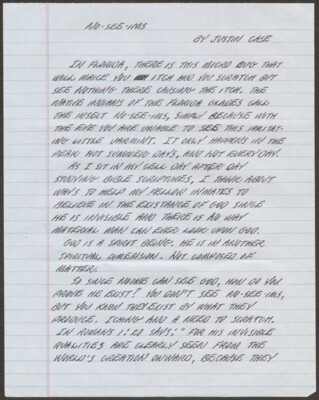 NO-SEE-UMS
BY JUSTIN CASE
IN FLORIDA, THERE IS THIS MICRO BUG THAT
WILL MAKE YOU ITCH AND YOU SCRATCH BUT
SEE NOTHING THERE CAUSING THE ITCH. THE
NATIVE INDIANS OF THE FLORIDA GLADES CALL
THE INSECT NO-SEE-UMS, SIMPLY BECAUSE WITH
THE EYE YOU ARE UNABLE TO SEE THIS IRRITAT-
ING LITTLE VARMINT. IT ONLY HAPPENS IN THE
PEAK HOT SUMMER DAYS, AND NOT EVERYDAY.
AS I SIT IN MY CELL DAY AFTER DAY
STUDYING BIBLE SCRIPTURES, I THINK ABOUT
WAYS TO HELP MY FELLOW INMATES TO
BELIEVE IN THE EXISTANCE OF GOD SINCE
HE IS INVISIBLE AND THERE IS NO WAY
MATERIAL MAN CAN EVER LOOK UPON GOD.
GOD IS A SPIRIT BEING. HE IS IN ANOTHER
SPIRITUAL DIMENSION. NOT COMPOSED OF
MATTER.
SO SINCE NOONE CAN SEE GOD, HOW DO YOU
PROVE HE EXIST? YOU DON'T SEE NO-SEE-UMS,
BUT YOU KNOW THEY EXIST BY WHAT THEY
PRODUCE. ICHING AND A NEED TO SCRATCH.
IN ROMANS 1:20 SAYS; "FOR HIS INVISIBLE
QUALITIES ARE CLEARLY SEEN FROM THE
WORLD'S CREATION ONWARD, BECAUSE THEY